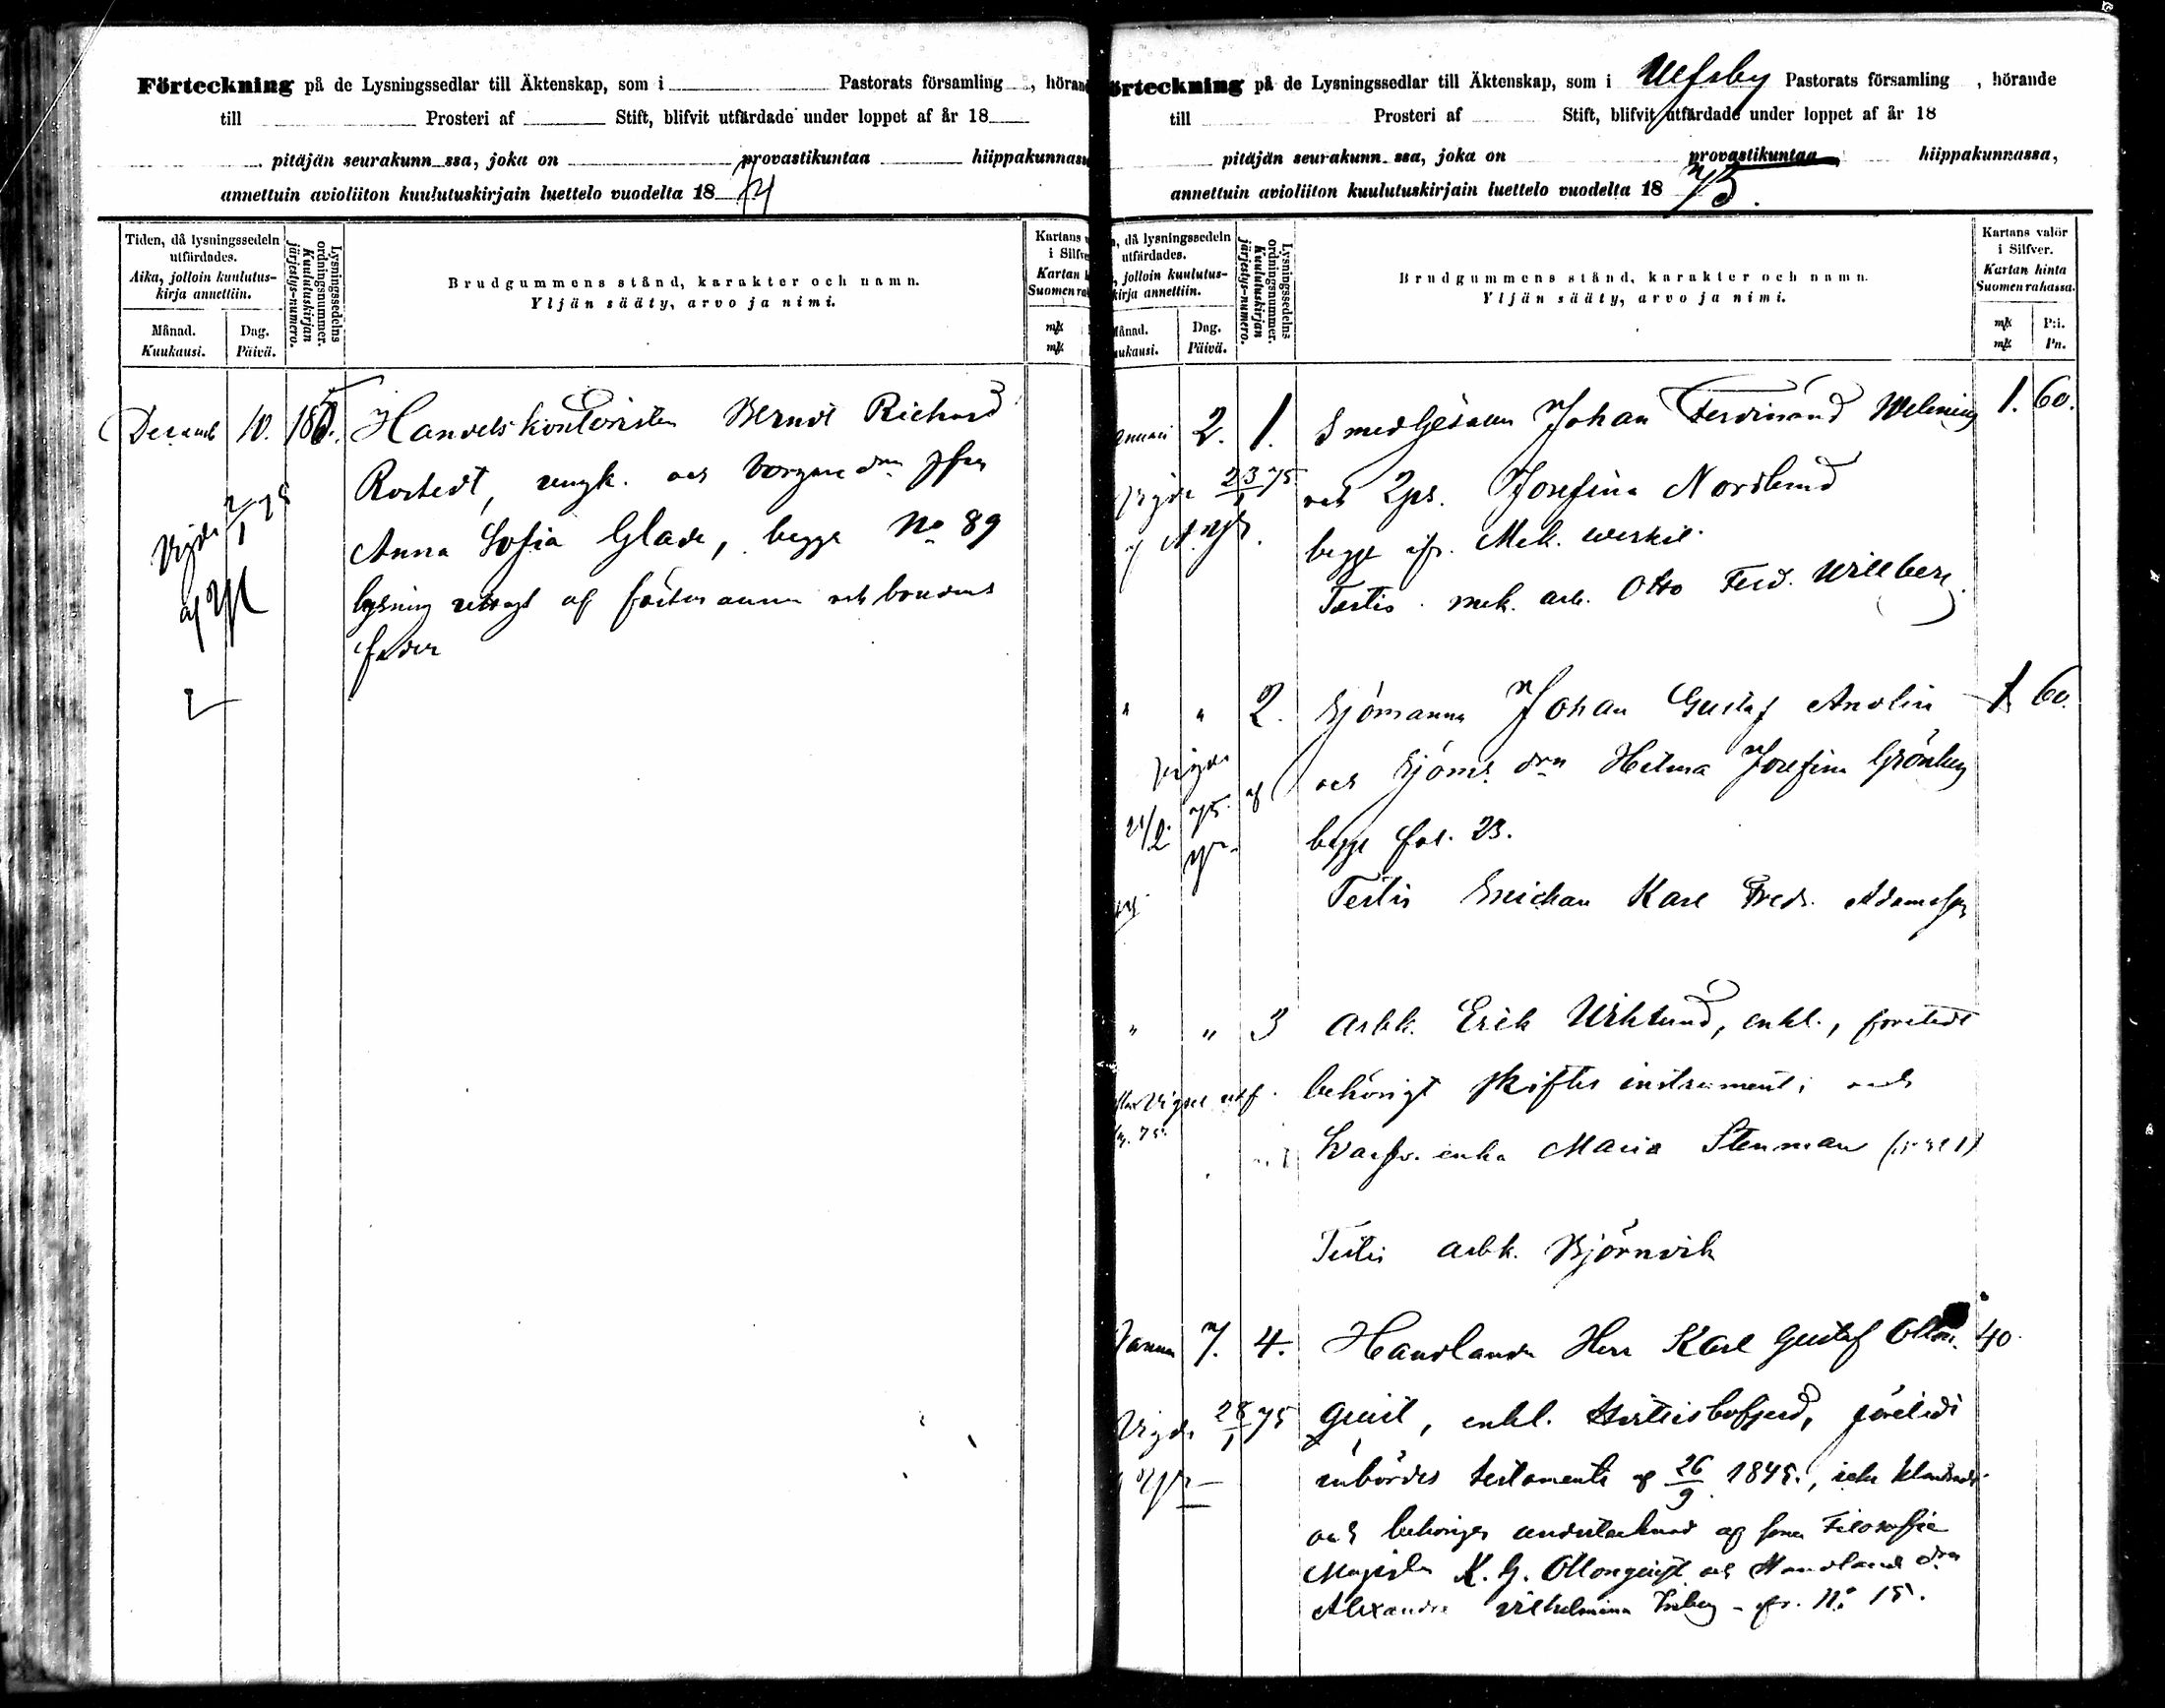 Förteckning på de Lysningssedlar till Äktenskap, som i Pastorats församling , hörand
till Prosteri af Stift, blifvit utfärdade under loppet af år 18
pitäjän seurakunn ssa, joka on provastikuntaa hiippakunnass
annettuin avioliiton kuulutuskirjain luettelo vuodelta 1874
Tiden, då lysningssedeln utfärdades.
Aika, jolloin kuulutus-kirja annettiin.
Månad.
Kuukausi.
Dag.
Päivä.
Lysningssedelns ordningsnummer.
Kuulutuskirjan järjestys-numero.
Brudgummens stånd, karakter och namn.
Yljän sääty, arvo ja nimi.
Kartans
i Silfve
Kartan
Suomen ra
mk
mk
Decemb 10. Handelskontoristen Berndt Richard
Rostedt, ungk. och borgare dn jfru
Vigde 2/1 75
Anna Sofia Glade, begge No 89
af
lysning af och brudens
fader
örteckning på de Lysningssedlar till Äktenskap, som i Ulfsby Pastorats församling , hörande
till Prosteri af Stift, blifvit utfärdade under loppet af år 18
pitäjän seurakunn ssa, joka on provastikuntaa hiippakunnassa,
annettuin avioliiton kuulutuskirjain luettelo vuodelta 1875.
, då lysningssedeln utfärdades.
, jolloin kuulutus-kirja annettiin.
Månad.
ukausi.
Dag.
Päivä.
Lysningssedelns ordningsnummer.
Kuulutuskirjan järjestys-numero.
Brudgummens stånd, karakter och namn.
Yljän sääty, arvo ja nimi.
Kartans valör
i Silfver.
Kartan hinta
Suomen rahassa.
mk P:i.
mk Pn.
anuari 2. 1. Smedgesällen Johan Ferdinand 1. 60.
Vigde 23/1 75 och Josefina Nordlund
begge Mek. werkst.
Testis mek. arb. Otto Ferd. Willberg.
" " 2. Sjömannen Johan Gustaf Andlin 1 60.
Vigde
och Sjöms dn Hilma Josefina Grönberg
21/2 75 af
begge fol. 23.
Testis Karl Fredr. Adamsson
" " 3 Arbk. Erik Wiklund, enkl., företedt
behörigt skiftes instrument; och
75.
enka Maria Stenman
Testis arbk. Björnvik
Januar 7. 4. Handlanden Herr Karl Gustaf Ollon- 40
Vigde 28/1 75 quist, enkl. företedt
inbördes testamente af 26/9 1845., icke klandradt
och behörigen undertecknad af sonen Filosofie
Magister K. G. Ollonquist och Handland dn
Alexandra Vilhelmina No 15.